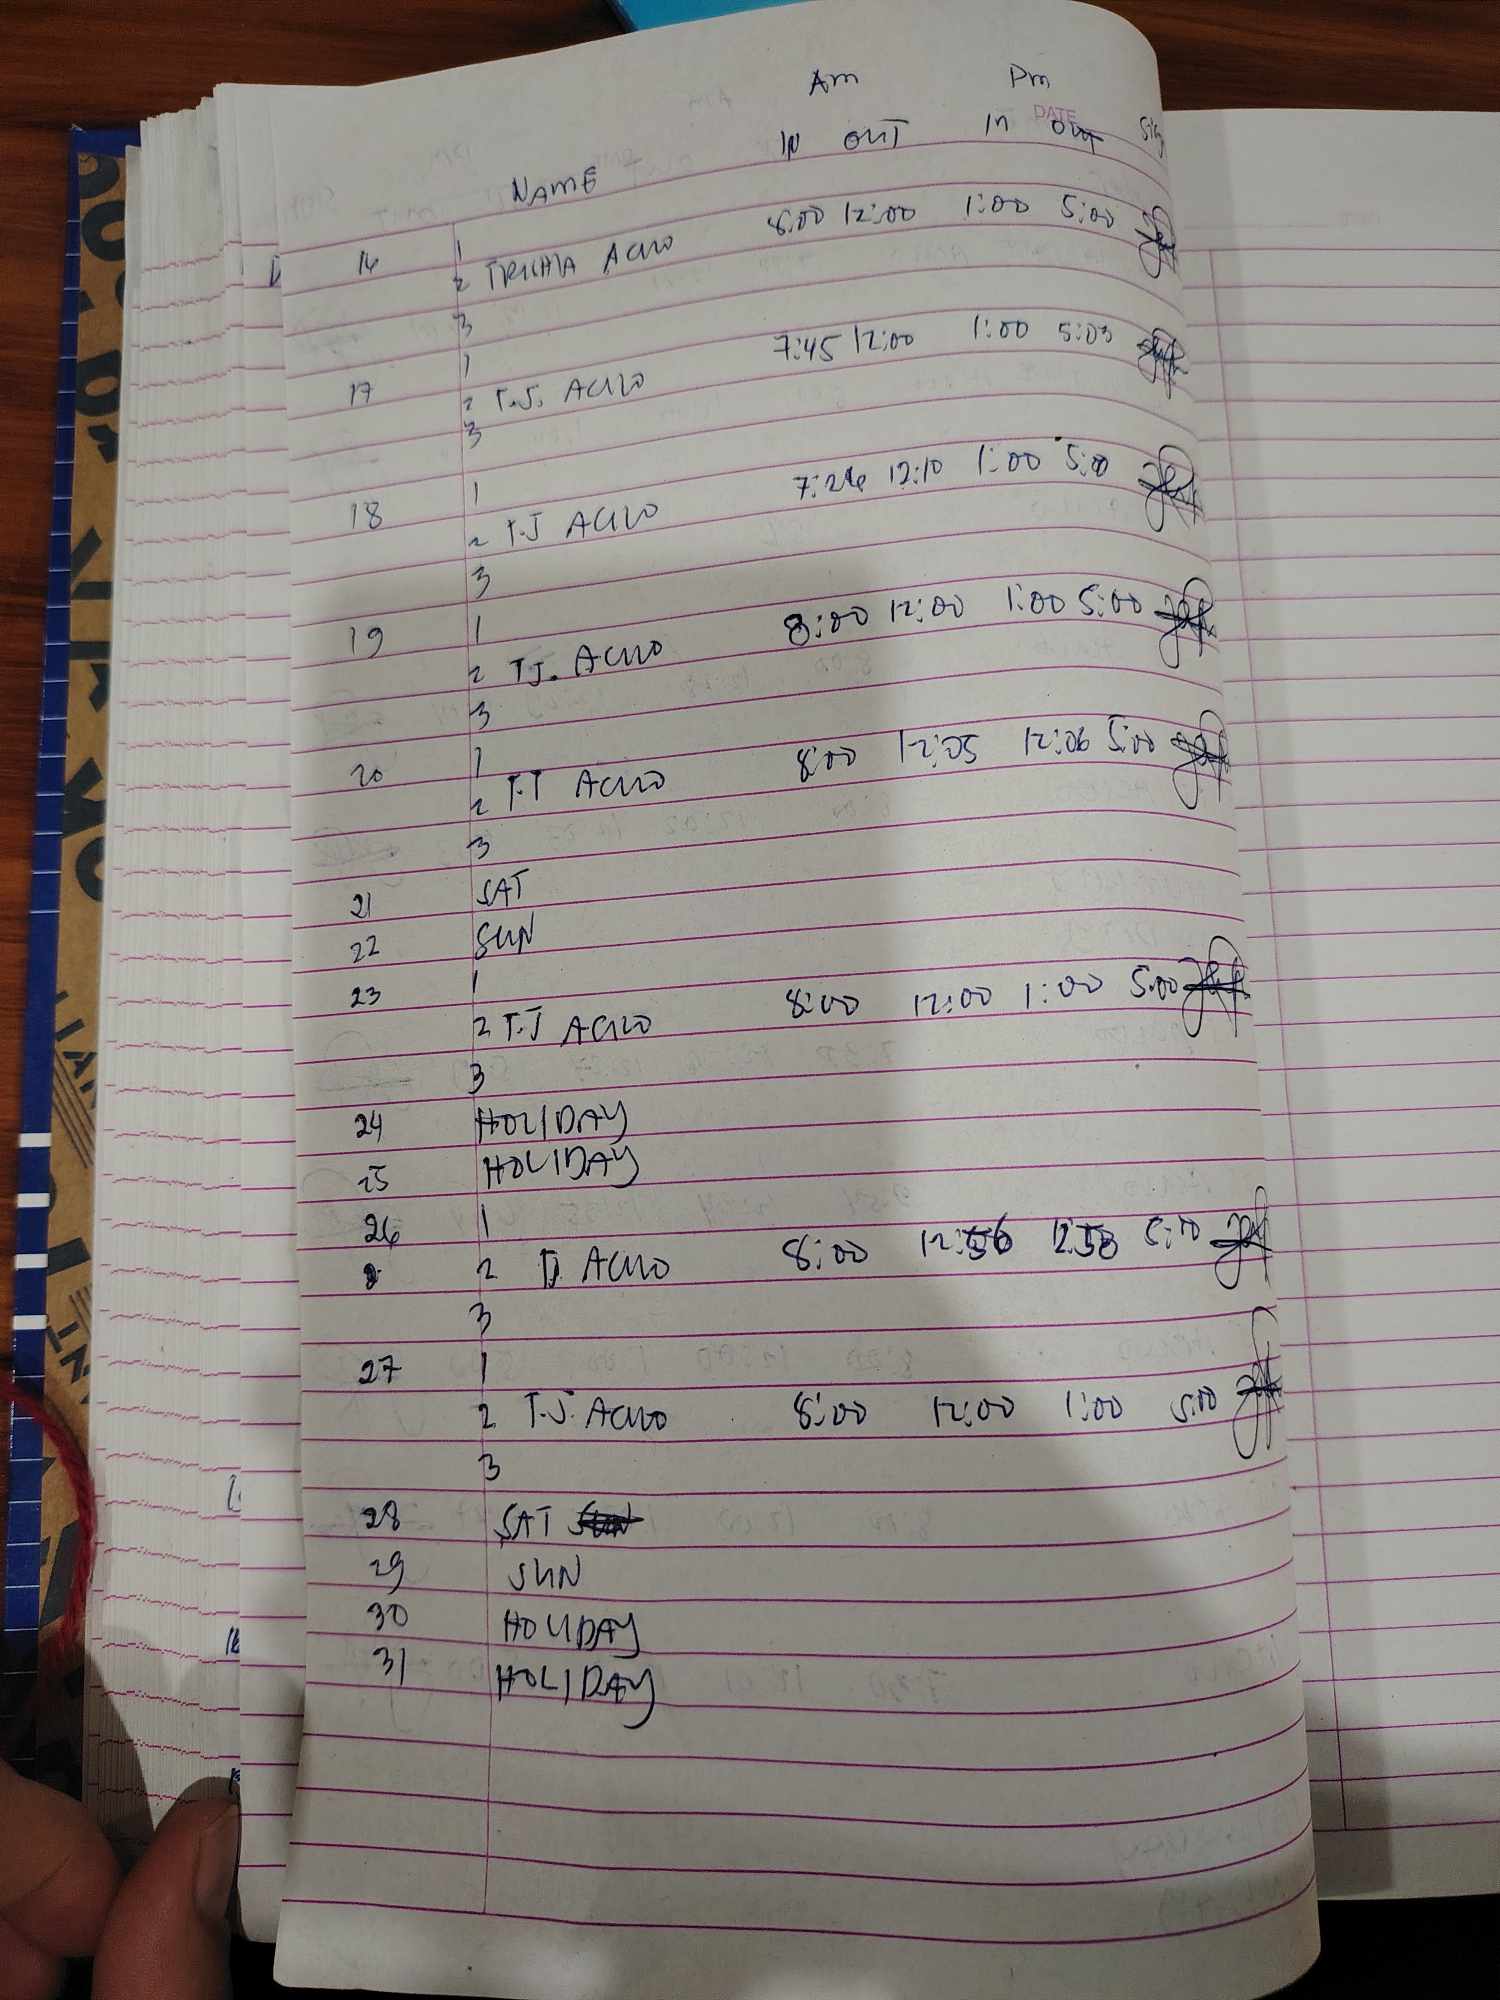 Am Pm
DATE
NAME IN OUT In OUT Sig
16 1 8:00 12:00 1:00 5:00
2 TRICIA ACLLO
3
17 1 7:45 12:00 1:00 5:03
2 T.J. ACLLO
3
18 1 7:26 12:10 1:00 5:00
2 T.J ACLLO
3
19 1 8:00 12:00 1:00 5:00
2 TJ. ACLLO
3
20 1 8:00 12:05 12:06 5:00
2 ACLLO
3
21 SAT
22 SUN
23 1
2 T.J ACLLO 8:00 12:00 1:00 5:00
3
24 HOLIDAY
25 HOLIDAY
26 1
2 TJ ACLLO 8:00 12:56 12:58 5:00
3
27 1
2 T.J. ACLLO 8:00 12:00 1:00 5:00
3
28 SAT
29 SUN
30 HOLIDAY
31 HOLIDAY